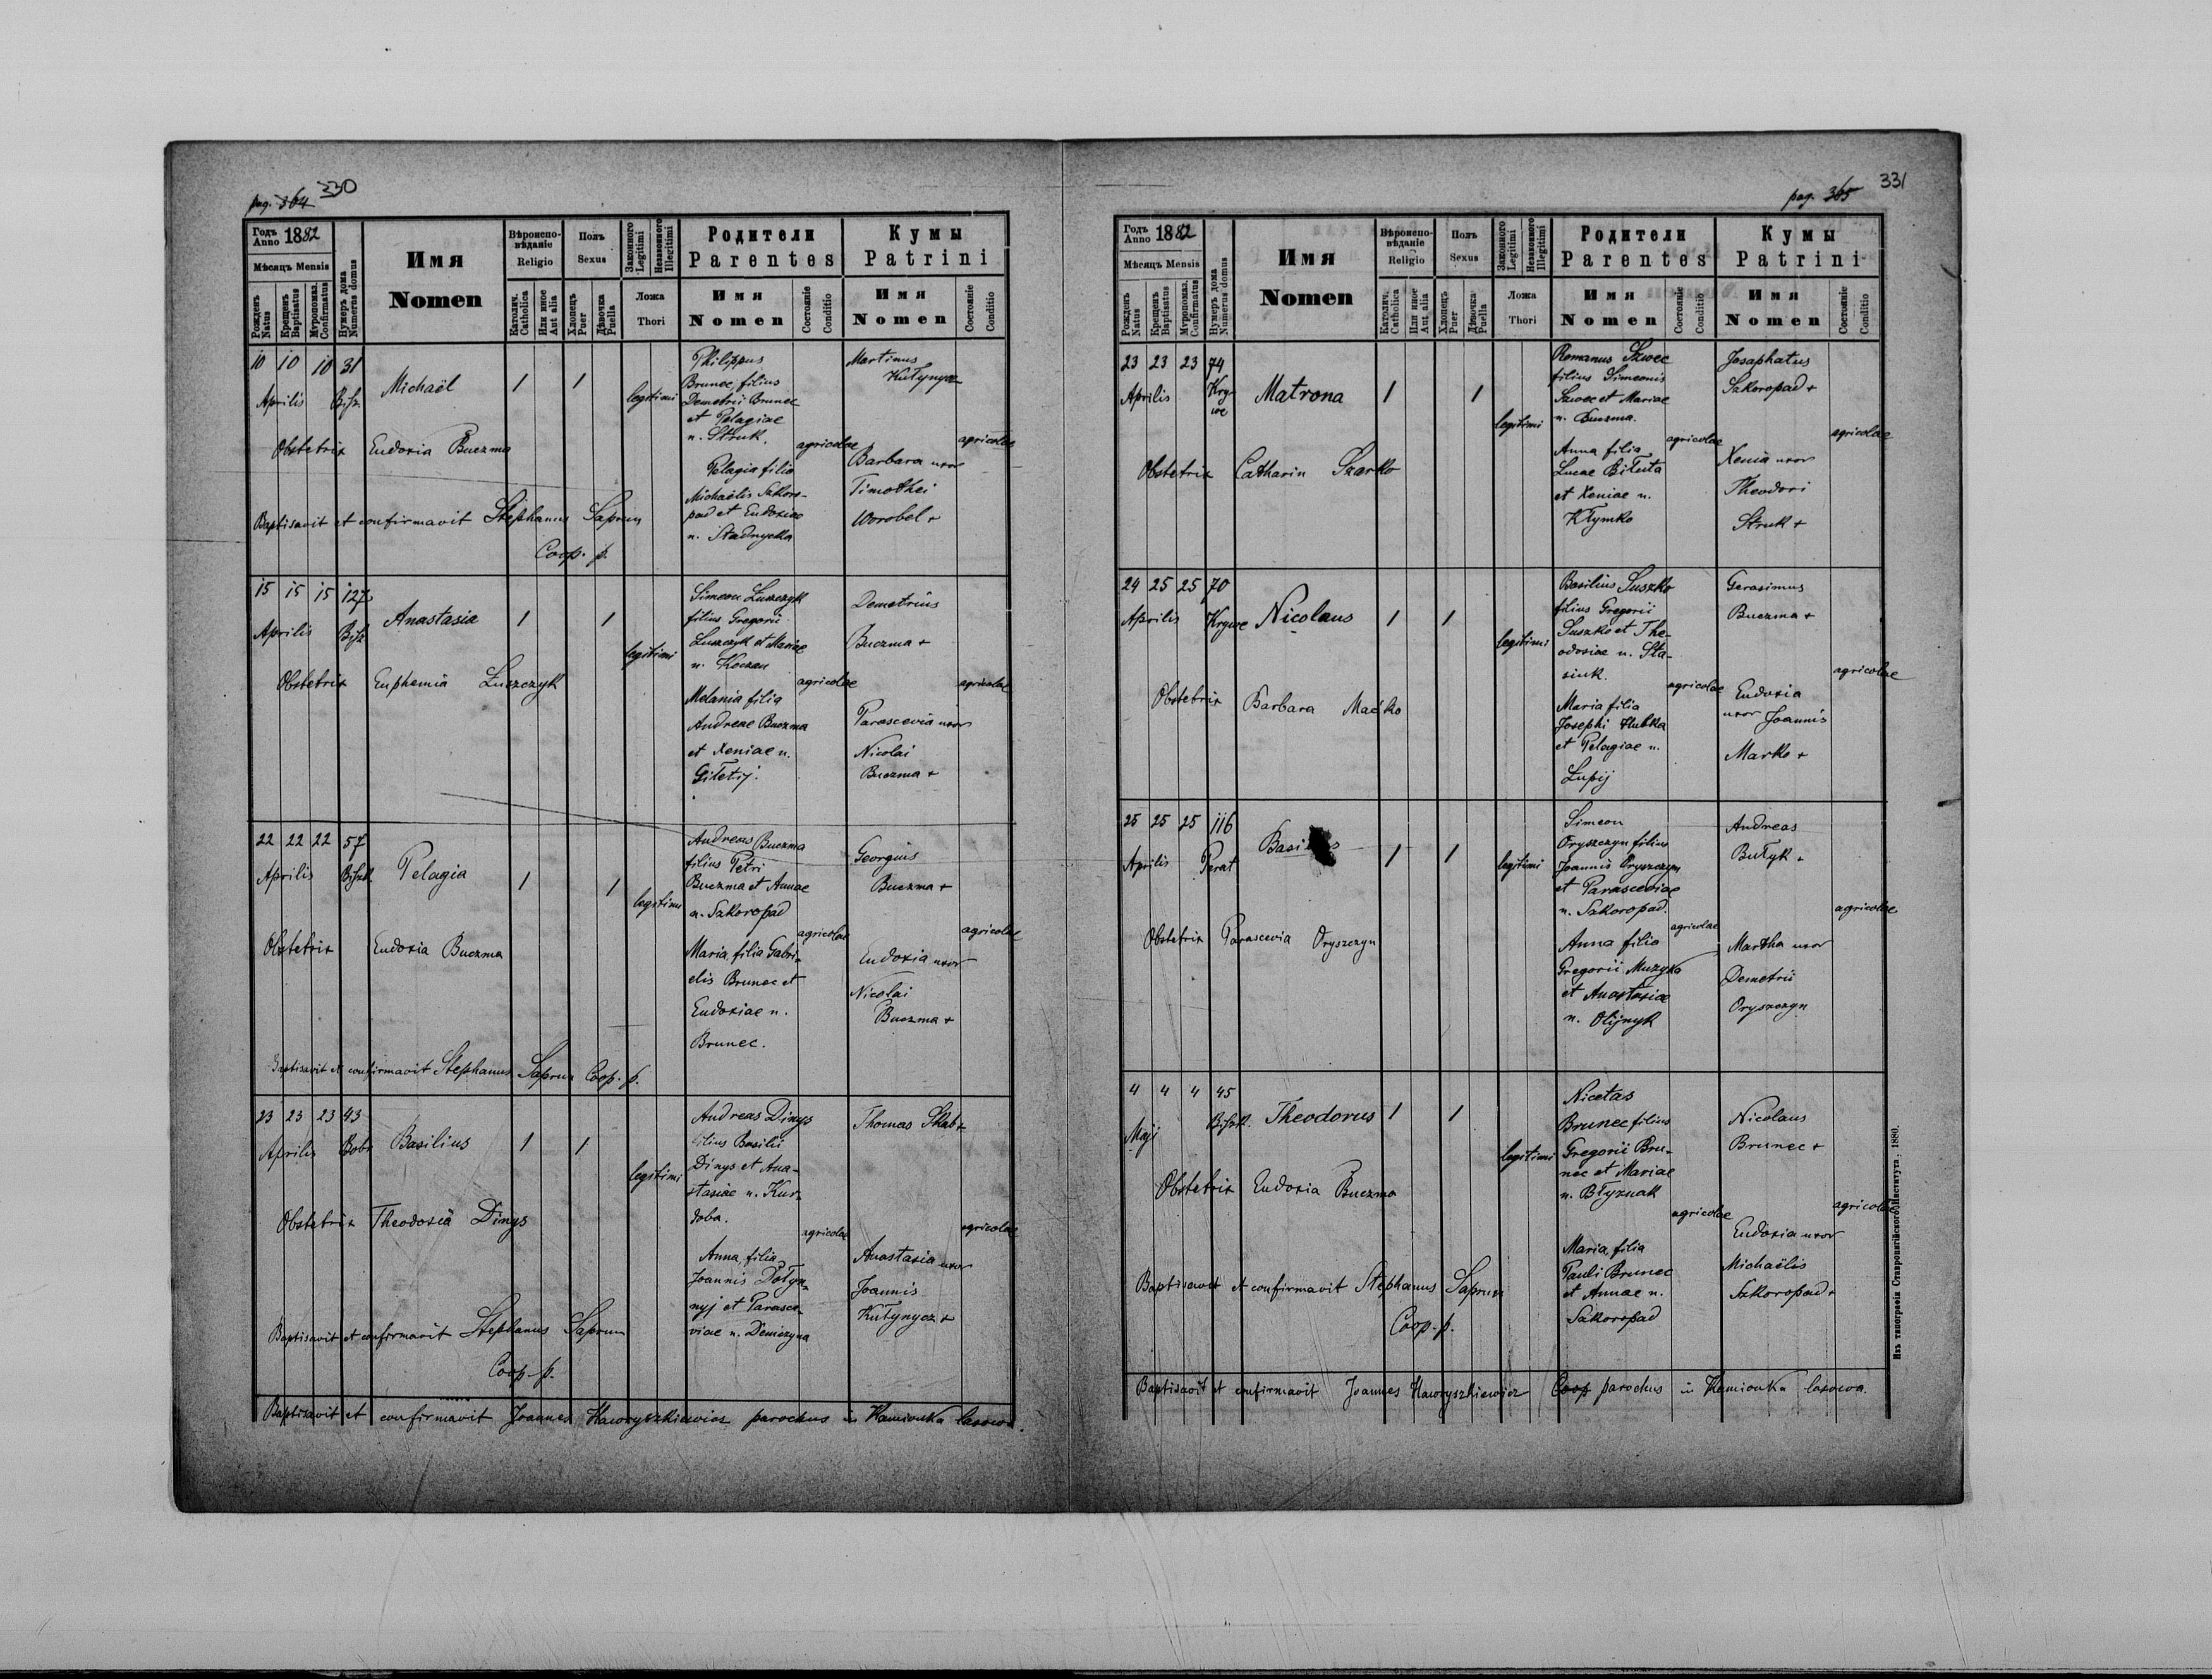 pag. 364 330
Годъ Anno 1882
Мѣсяцъ Mensis
Рожденъ Natus
Крещенъ Baptisatus
Мѵропомаз. Confirmatus
Нумеръ дома Numerus domus
Имя
Nomen
Вѣроиспо-
вѣданіе
Religio
Католич. Catholica
Или иное Aut alia
Полъ
Sexus
Хлопецъ Puer
Дѣвочка Puella
Законного Legitimi
Незаконного Illegitimi
Ложа
Thori
Родители
Parentes
Имя
Nomen
Состояніе
Conditio
Кумы
Patrini
Имя
Nomen
Состояніе
Conditio
10 10 10 31
Aprilis Bişz.
Michaël
1 1
legitimi
Philippus
Brunec filius
Demetrii Brunec
et Pelagiae
n. Struk.
agricolae
Pelagia filia
Michaëlis Szkoro-
pad et Eudoxiae
n. Stadnycka
Martinus
Kułynycz
agricolae
Barbara uxor
Timothei
Worobel +
Obstetrix Eudoxia Buczma
Baptisavit et confirmavit Stephanus Saprun
Coop. p.
15 15 15 127
Aprilis
Anastasia
1 1
legitimi
Simeon Łuszczyk
filius Gregorii
Łuszczyk et Mariae
n. Koczan
agricolae
Melania filia
Andreae Buczma
et Xeniae n.
Giłetij.
Demetrius
Buczma +
agricolae
Parascevia uxor
Nicolai
Buczma +
Obstetrix Euphemia Łuszczyk
22 22 22 57
Aprilis
Pelagia
1 1
legitimi
Andreas Buczma
filius Petri
Buczma et Annae
n. Szkoropad
agricolae
Maria filia Gabri-
elis Brunec et
Eudoxiae n.
Brunec.
Georgius
Buczma +
agricolae
Eudoxia uxor
Nicolai
Buczma +
Obstetrix Eudoxia Buczma
Baptisavit et confirmavit Stephanus Saprun Coop. p.
23 23 23 43
Aprilis Bobr
Basilius
1 1
legitimi
Andreas Dinys
filius Basilii
Dinys et Ana-
stasiae n. Kur-
doba.
agricolae
Anna filia
Joannis Dołyn-
nyj et Parasce-
viae n. Demczyna
Thomas Skab +
agricolae
Anastasia uxor
Joannis
Kułynycz +
Obstetrix Theodosia Dinys
Baptisavit et confirmavit Stephanus Saprun
Coop. p.
Baptisavit et confirmavit Joannes Haworyszkiewicz parochus in Kamionka lasowa.
pag. 365 331
Годъ Anno 1882
Мѣсяцъ Mensis
Рожденъ Natus
Крещенъ Baptisatus
Мѵропомаз. Confirmatus
Нумеръ дома Numerus domus
Имя
Nomen
Вѣроиспо-
вѣданіе
Religio
Католич. Catholica
Или иное Aut alia
Полъ
Sexus
Хлопецъ Puer
Дѣвочка Puella
Законного Legitimi
Незаконного Illegitimi
Ложа
Thori
Родители
Parentes
Имя
Nomen
Состояніе
Conditio
Кумы
Patrini
Имя
Nomen
Состояніе
Conditio
23 23 23 74
Aprilis Kry-
we
Matrona
1 1
legitimi
Romanus Szwec
filius Simeonis
Szwec et Mariae
n. Buczma.
agricolae
Anna filia
Lucae Biłuta
et Xeniae n.
Kłymko
Josaphatus
Szkoropad +
agricolae
Xenia uxor
Theodori
Struk +
Obstetrix Catharin Szarko
24 25 25 70
Aprilis Krywe
Nicolaus
1 1
legitimi
Basilius Suszko
filius Gregorii
Suszko et The-
odosiae n. Sta-
siuk.
agricolae
Maria filia
Josephi Hubka
et Pelagiae n.
Łupij
Gerasimus
Buczma +
agricolae
Eudoxia
uxor Joannis
Marko +
Obstetrix Barbara Maćko
25 25 25 116
Aprilis Perat
1 1
legitimi
Simeon
Oryszczyn filius
Joannis Oryszczyn
et Parasceviae
n. Szkoropad.
agricolae
Anna filia
Gregorii Muzyka
et Anastasiae
n. Olijnyk
Andreas
Bułyk +
agricolae
Martha uxor
Demetrii
Oryszczyn
Obstetrix Parascevia Oryszczyn
4 4 4 45
Maji
Theodorus
1 1
legitimi
Nicetas
Brunec filius
Gregorii Bru-
nec et Mariae
n. Błyznak
agricolae
Maria filia
Pauli Brunec
et Annae n.
Szkoropad
Nicolaus
Brunec +
agricolae
Eudoxia uxor
Michaëlis
Szkoropad +
Obstetrix Eudoxia Buczma
Baptisavit et confirmavit Stephanus Saprun
Coop. p.
Baptisavit et confirmavit Joannes Haworyszkiewicz Coop parochus in Kamionka lasowa.
Изъ типографіи Ставропигійского Института. 1880.